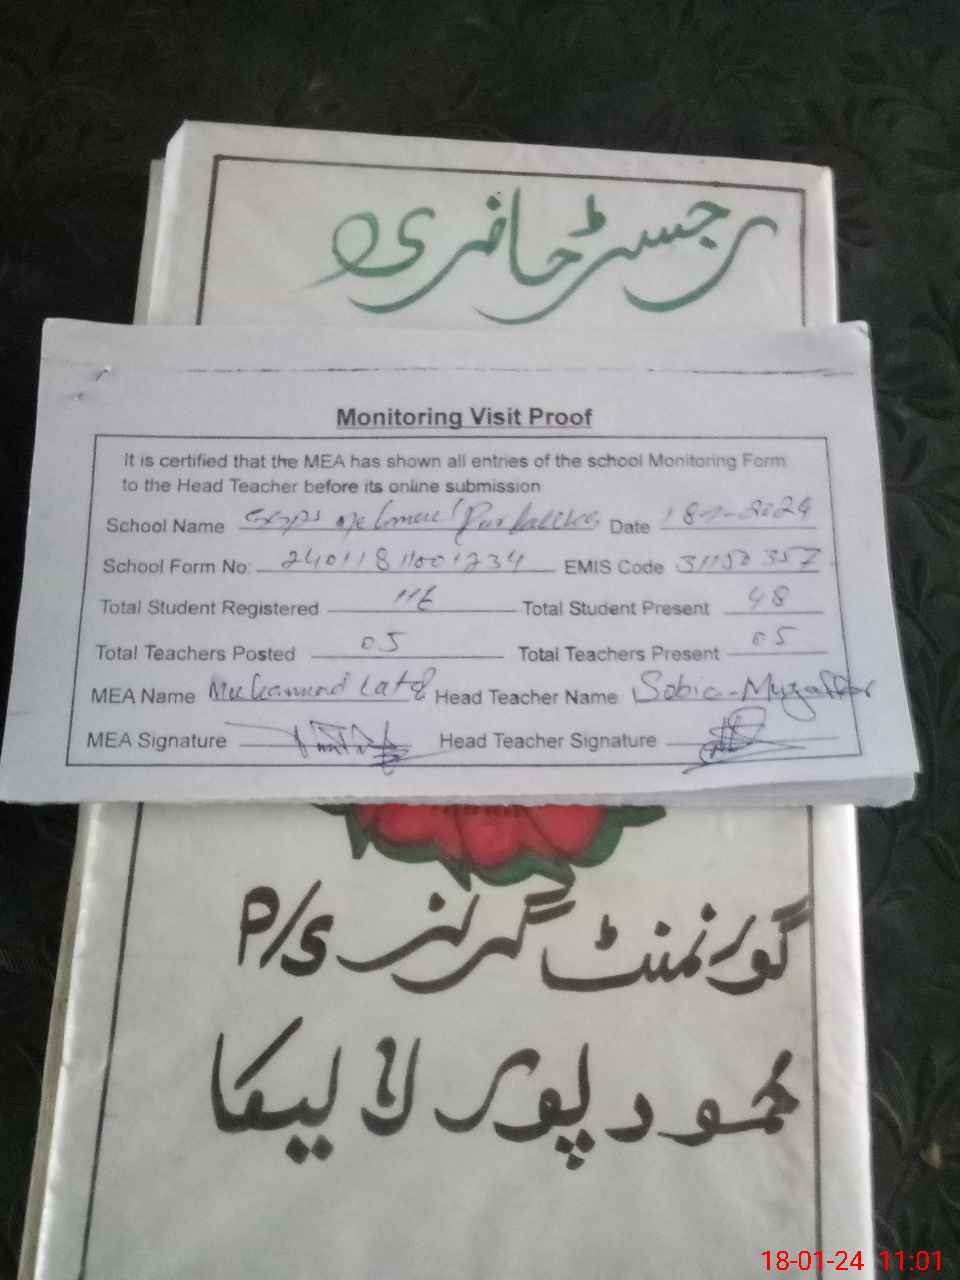 رجسٹر حاضری
Monitoring Visit Proof
It is certified that the MEA has shown all entries of the school Monitoring Form
to the Head Teacher before its online submission
School Name Date 18-1-2024
School Form No: 24011811001234 EMIS Code 31150357
Total Student Registered Total Student Present 48
Total Teachers Posted 05 Total Teachers Present 05
MEA Name Muhammad Latif Head Teacher Name Sobia-Muzaffar
MEA Signature Head Teacher Signature
گورنمنٹ گرلز P/S
محمود پور لالیکا
18-01-24 11:01